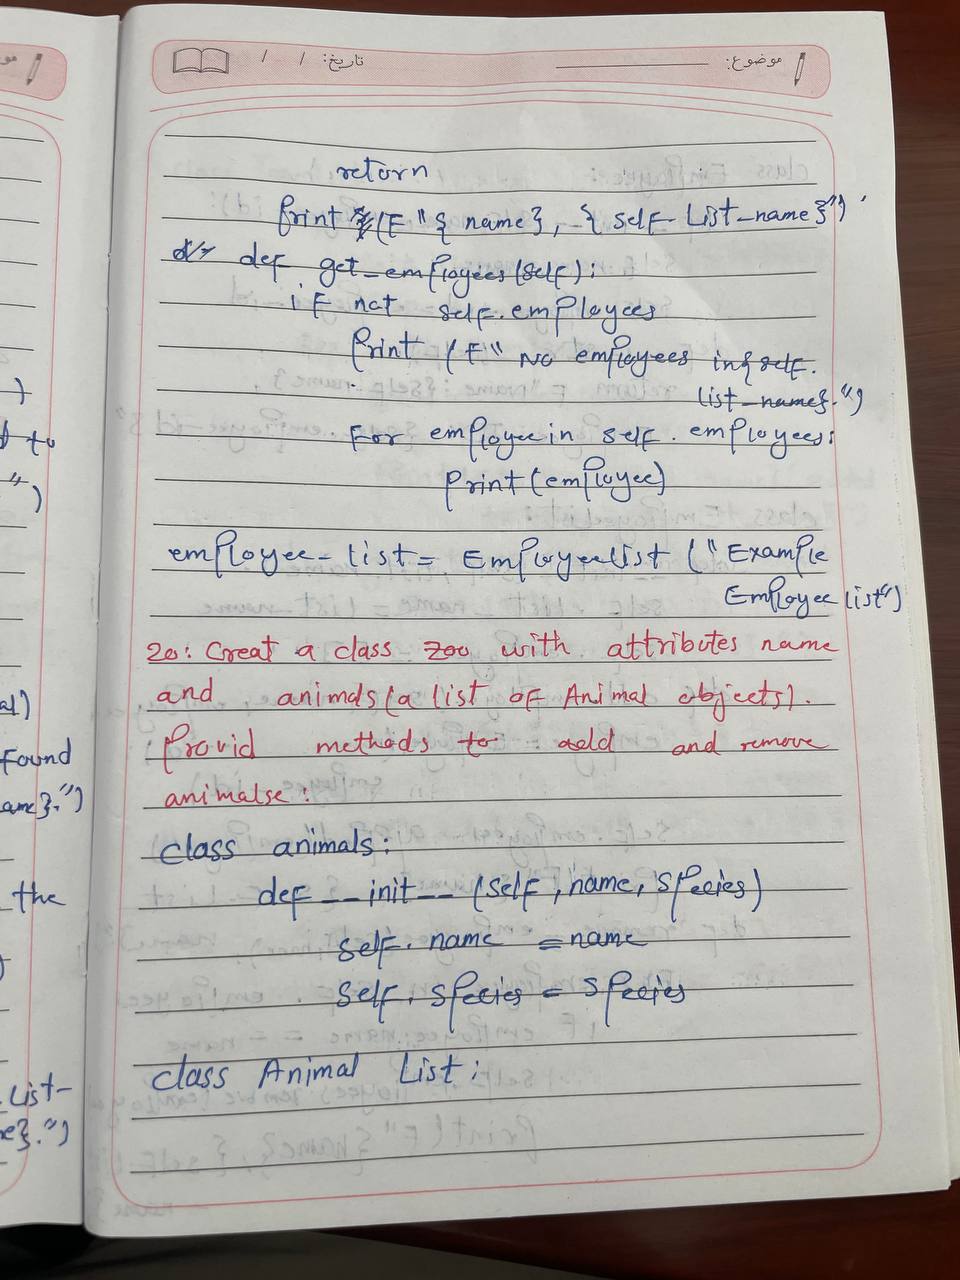 موضوع:
تاریخ: / /
return
Print (F" { name}, { self-List-name}")
def get-employees(self):
if not self.employees
Print (F" No employees in{self.
list-name}.")
For employee in self.employees:
Print(employee)
employee-list= Employeelist ("Example
Employee list")
20: Creat a class zoo with attributes name
and animals (a list of Animal objects).
Provid methods to add and remove
animalse:
class animals:
def __init__ (self, name, species)
self.name = name
Self.species = species
class Animal List:
)
to
")
al)
Found
ame}.")
the
List-
e}.")